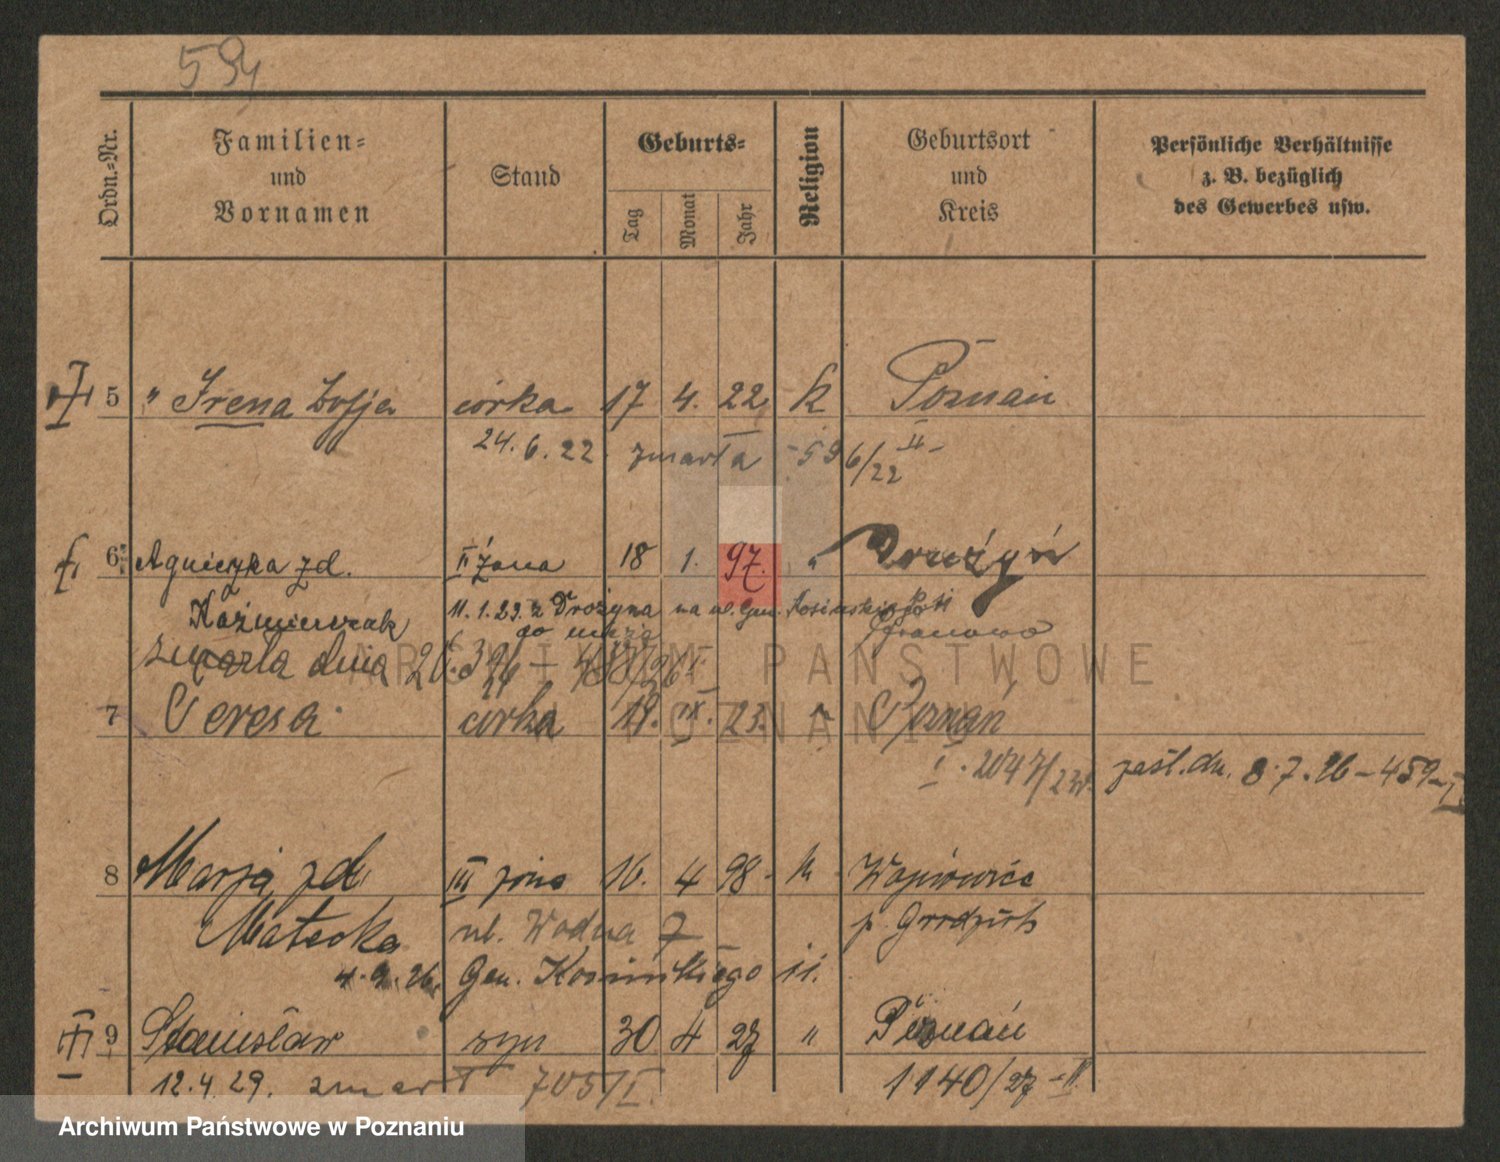 Ordn.-Nr.
Familien-
und
Vornamen
Stand
Geburts-
Tag
Monat
Jahr
Religion
Geburtsort
und
Kreis
Persönliche Verhältnisse
z. B. bezüglich
des Gewerbes usw.
5 " Irena Zofja córka 17 4. 22 K Poznań
24. 6. 22. zmarła - 596/22 II -
6 Agnieszka zd. II żona 18 1. 97. " Drożyń
Kaźmierczak 11.1.23. z Drożyna na ul. Gen. Kosińskiego
do męża Granowo
zmarła dnia
7 Teresa córka 19. IX. 23. " Poznań
I. 2047/23
8. 7. 26 - 459 -
8 Marja zd. III żona 16. 4 98. K Wojnowice
Matecka ul. Wodna 7 p. Grodzisk
4. 9. 26. Gen. Kosińskiego 11.
9 Stanisław syn 30 4 27 " Poznań
12. 4. 29. zmarł 705/I. 1140/27 - II.
ARCHIWUM PAŃSTWOWE
W POZNANIU
Archiwum Państwowe w Poznaniu